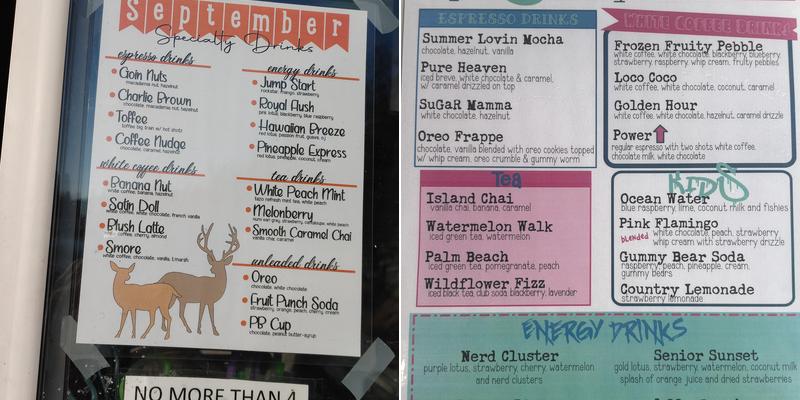 September
Specialty Drinks
espresso drinks
Goin Nuts
macadamia nut, hazelnut
Charlie Brown
chocolate, macadamia nut, hazelnut
Toffee
toffee big train w/ hot shots
Coffee Nudge
chocolate, caramel, hazelnut
white coffee drinks
Banana Nut
white coffee, banana, hazelnut
Satin Doll
white coffee, white chocolate, french vanilla
Blush Latte
white coffee, cherry, almond
Smore
white coffee, chocolate, vanilla, t.marsh
energy drinks
Jump Start
rockstar, mango, strawberry
Royal Flush
pink lotus, blackberry, blue raspberry
Hawaiian Breeze
red lotus, passion fruit, guava, oj
Pineapple Express
red lotus, pineapple, coconut, cream
tea drinks
White Peach Mint
tazo refresh mint tea, white peach
Melonberry
Smooth Caramel Chai
vanilla chai, caramel
unleaded drinks
Oreo
chocolate, white chocolate
Fruit Punch Soda
strawberry, orange, peach, cherry, cream
PB Cup
chocolate, peanut butter-syrup
NO MORE THAN 4
ESPRESSO DRINKS
Summer Lovin Mocha
chocolate, hazelnut, vanilla
Pure Heaven
iced breve, white chocolate & caramel,
w/ caramel drizzled on top
SuGaR Mamma
white chocolate, hazelnut
Oreo Frappe
chocolate, vanilla blended with oreo cookies topped
w/ whip cream, oreo crumble & gummy worm
WHITE COFFEE DRINKS
Frozen Fruity Pebble
white coffee, white chocolate, blackberry, blueberry,
strawberry, raspberry, whip cream, fruity pebbles
Loco Coco
white coffee, white chocolate, coconut, caramel
Golden Hour
white coffee, white chocolate, hazelnut, caramel drizzle
Power
regular espresso with two shots white coffee,
chocolate milk, white chocolate
Tea
Island Chai
vanilla chai, banana, caramel
Watermelon Walk
iced green tea, watermelon
Palm Beach
iced green tea, pomegranate, peach
Wildflower Fizz
iced black tea, club soda, blackberry, lavender
KIDS
Ocean Water
blue raspberry, lime, coconut milk and fishies
Pink Flamingo
blended white chocolate, peach, strawberry,
whip cream with strawberry drizzle
Gummy Bear Soda
raspberry, peach, pineapple, cream,
gummy bears
Country Lemonade
strawberry lemonade
ENERGY DRINKS
Nerd Cluster
purple lotus, strawberry, cherry, watermelon
and nerd clusters
Senior Sunset
gold lotus, strawberry, watermelon, coconut milk
splash of orange juice and dried strawberries